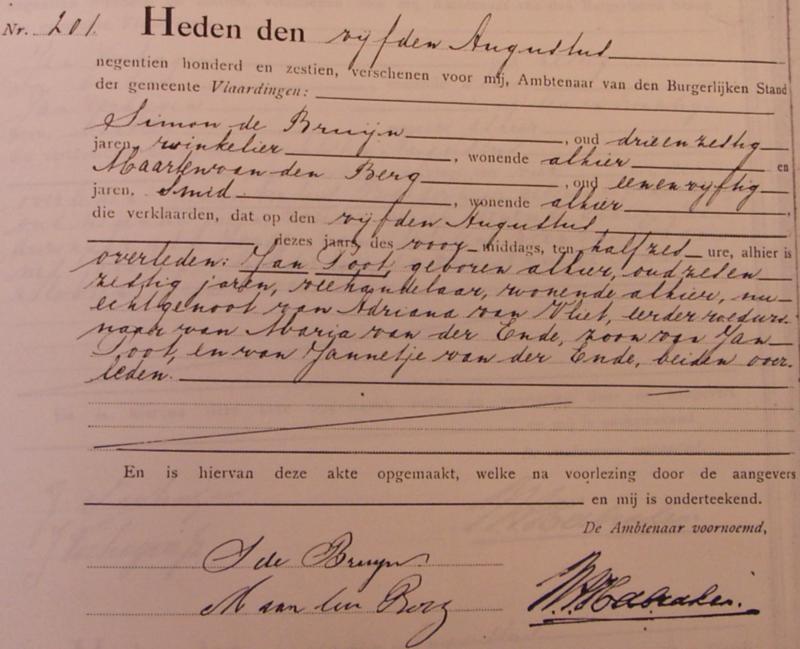 Nr. 201. Heden den vijfden Augustus
negentien honderd en zestien, verschenen voor mij, Ambtenaar van den Burgerlijken Stand
der gemeente Vlaardingen:
Simon de Bruijn, oud drieenzestig
jaren, winkelier, wonende alhier en
Maarten van den Berg, oud eenenvijftig
jaren, Smid, wonende alhier,
die verklaarden, dat op den vijfden Augustus
dezes jaars, des voormiddags, ten halfzes ure, alhier is
overleden: Jan Poot, geboren alhier, oud zeven
zestig jaren, veehandelaar, wonende alhier, nu
echtgenoot van Adriana van Vliet, eerder weduw-
naar van Maria van der Ende, zoon van Jan
Poot, en van Jannetje van der Ende, beiden over-
leden.
En is hiervan deze akte opgemaakt, welke na voorlezing door de aangevers
en mij is onderteekend.
De Ambtenaar voornoemd,
S de Bruyn
Maarten Berg